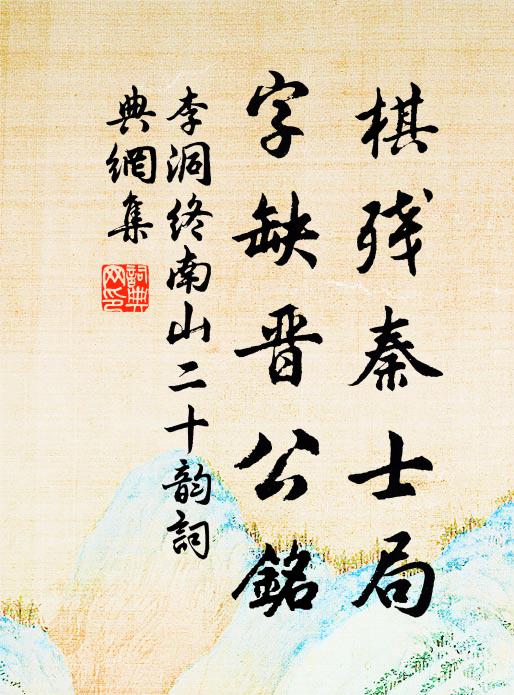 棋残秦士局
字缺晋公銘
李洞终南山二十韵詞
典網集
詞典網印